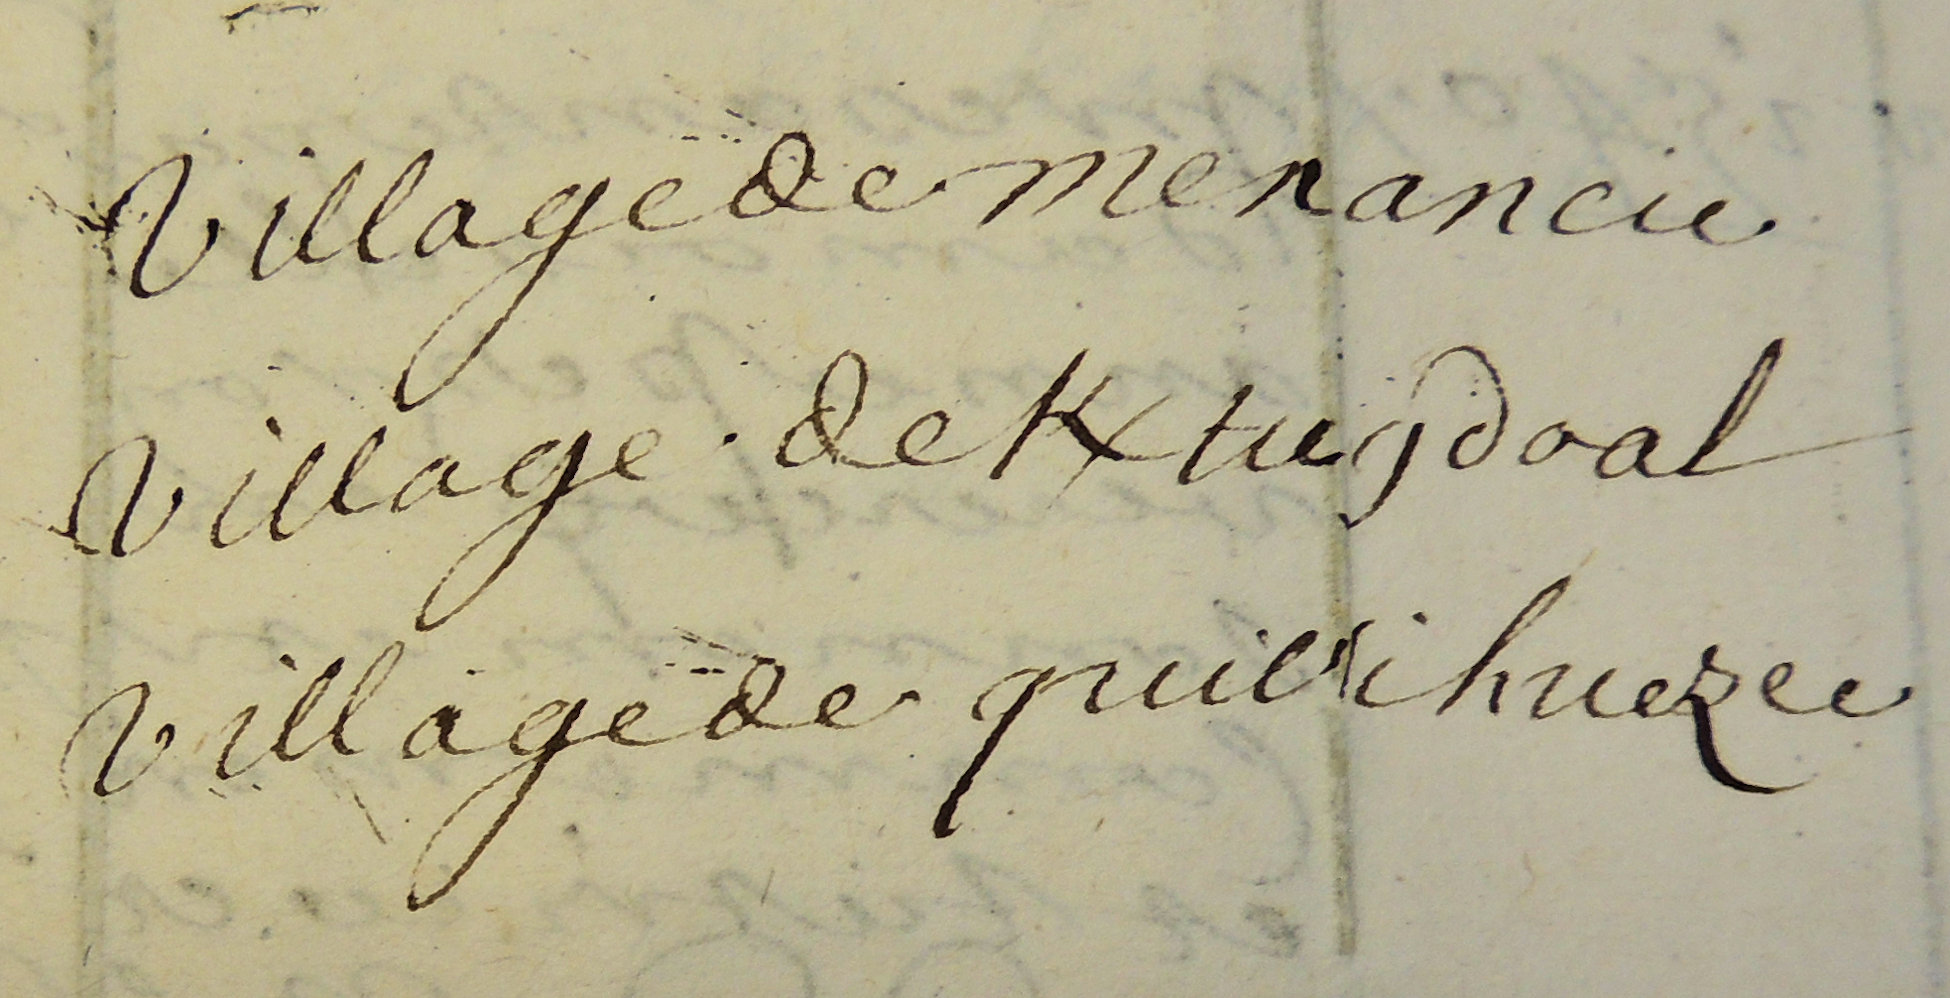 village de menancie
village de K tuydoal
village de quilvihuezec